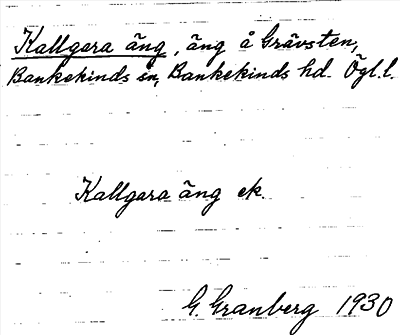 Kallgara äng, äng å Grävsten,
Bankekinds sn, Bankekinds hd. Ögl.l.
Kallgara äng ek.
G. Granberg 1930